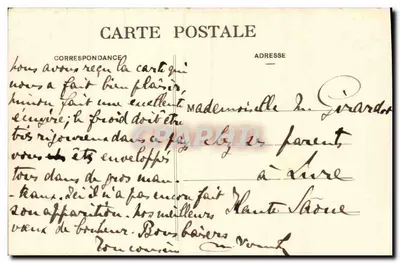 CARTE POSTALE
CORRESPONDANCE
ADRESSE
nous avons reçu la carte qui
nous a fait bien plaisir,
fait une excellente
le froid doit être
très rigoureux dans ce pays
vous êtes enveloppés
tous dans de gros man-
teaux. Ici il n'a pas encore fait
son apparition. nos meilleurs
vœux de bonheur. Bons baisers
Ton cousin
Mademoiselle M Girardot
chez ses parents
à Lure
Haute Saône